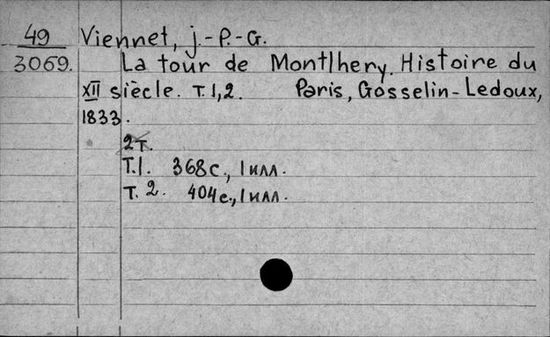 49 Viennet, J.-P.-G.
3069. La tour de Montlhery. Histoire du
XII siècle. T. 1,2. Paris, Gosselin-Ledoux,
1833.
2т.
Т.1. 368с., 1 илл.
Т. 2. 404с., 1 илл.